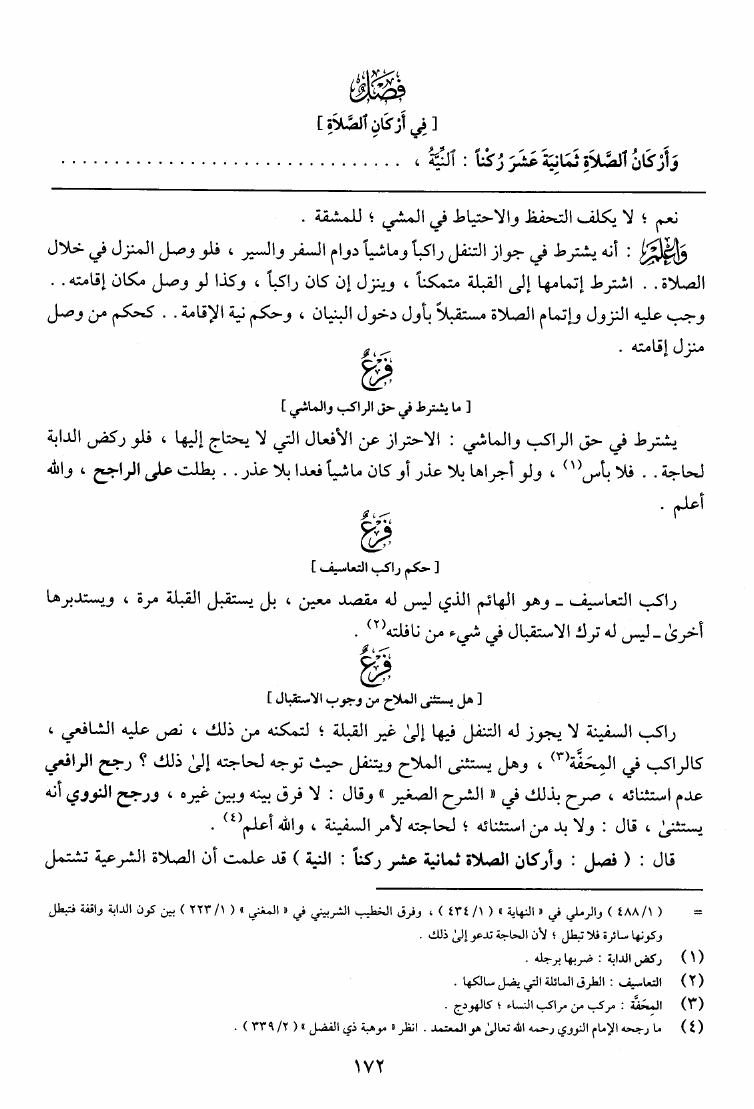 فَصْلٌ
[ فِي أَرْكَانِ ٱلصَّلَاةِ ]
وَأَرْكَانُ ٱلصَّلَاةِ ثَمَانِيَةَ عَشَرَ رُكْناً : ٱلنِّيَّةُ ، . . . . . . . . . . . . . . . . . . . . . . . . . . . . . . .
نعم ؛ لا يكلف التحفظ والاحتياط في المشي ؛ للمشقة .
وَاعْلَمْ : أنه يشترط في جواز التنفل راكباً وماشياً دوام السفر والسير ، فلو وصل المنزل في خلال
الصلاة . . اشترط إتمامها إلى القبلة متمكناً ، وينزل إن كان راكباً ، وكذا لو وصل مكان إقامته . .
وجب عليه النزول وإتمام الصلاة مستقبلاً بأول دخول البنيان ، وحكم نية الإقامة . . كحكم من وصل
منزل إقامته .
فَرْعٌ
[ ما يشترط في حق الراكب والماشي ]
يشترط في حق الراكب والماشي : الاحتراز عن الأفعال التي لا يحتاج إليها ، فلو ركض الدابة
لحاجة . . فلا بأس(١) ، ولو أجراها بلا عذر أو كان ماشياً فعدا بلا عذر . . بطلت على الراجح ، والله
أعلم .
فَرْعٌ
[ حكم راكب التعاسيف ]
راكب التعاسيف ـ وهو الهائم الذي ليس له مقصد معين ، بل يستقبل القبلة مرة ، ويستدبرها
أخرىٰ ـ ليس له ترك الاستقبال في شيء من نافلته(٢) .
فَرْعٌ
[ هل يستثنى الملاح من وجوب الاستقبال ]
راكب السفينة لا يجوز له التنفل فيها إلىٰ غير القبلة ؛ لتمكنه من ذلك ، نص عليه الشافعي ،
كالراكب في المِحَفَّة(٣) ، وهل يستثنى الملاح ويتنفل حيث توجه لحاجته إلىٰ ذلك ؟ رجح الرافعي
عدم استثنائه ، صرح بذلك في « الشرح الصغير » وقال : لا فرق بينه وبين غيره ، ورجح النووي أنه
يستثنىٰ ، قال : ولا بد من استثنائه ؛ لحاجته لأمر السفينة ، والله أعلم(٤) .
قال : ( فصل : وأركان الصلاة ثمانية عشر ركناً : النية ) قد علمت أن الصلاة الشرعية تشتمل
= ( ٤٨٨/١ ) والرملي في « النهاية » ( ٤٣٤/١ ) ، وفرق الخطيب الشربيني في « المغني » ( ٢٢٣/١ ) بين كون الدابة واقفة فتبطل
وكونها سائرة فلا تبطل ؛ لأن الحاجة تدعو إلىٰ ذلك .
(١) ركض الدابة : ضربها برجله .
(٢) التعاسيف : الطرق المائلة التي يضل سالكها .
(٣) المِحَفَّة : مركب من مراكب النساء ؛ كالهودج .
(٤) ما رجحه الإمام النووي رحمه الله تعالىٰ هو المعتمد . انظر « موهبة ذي الفضل » ( ٣٣٩/٢ ) .
١٧٢